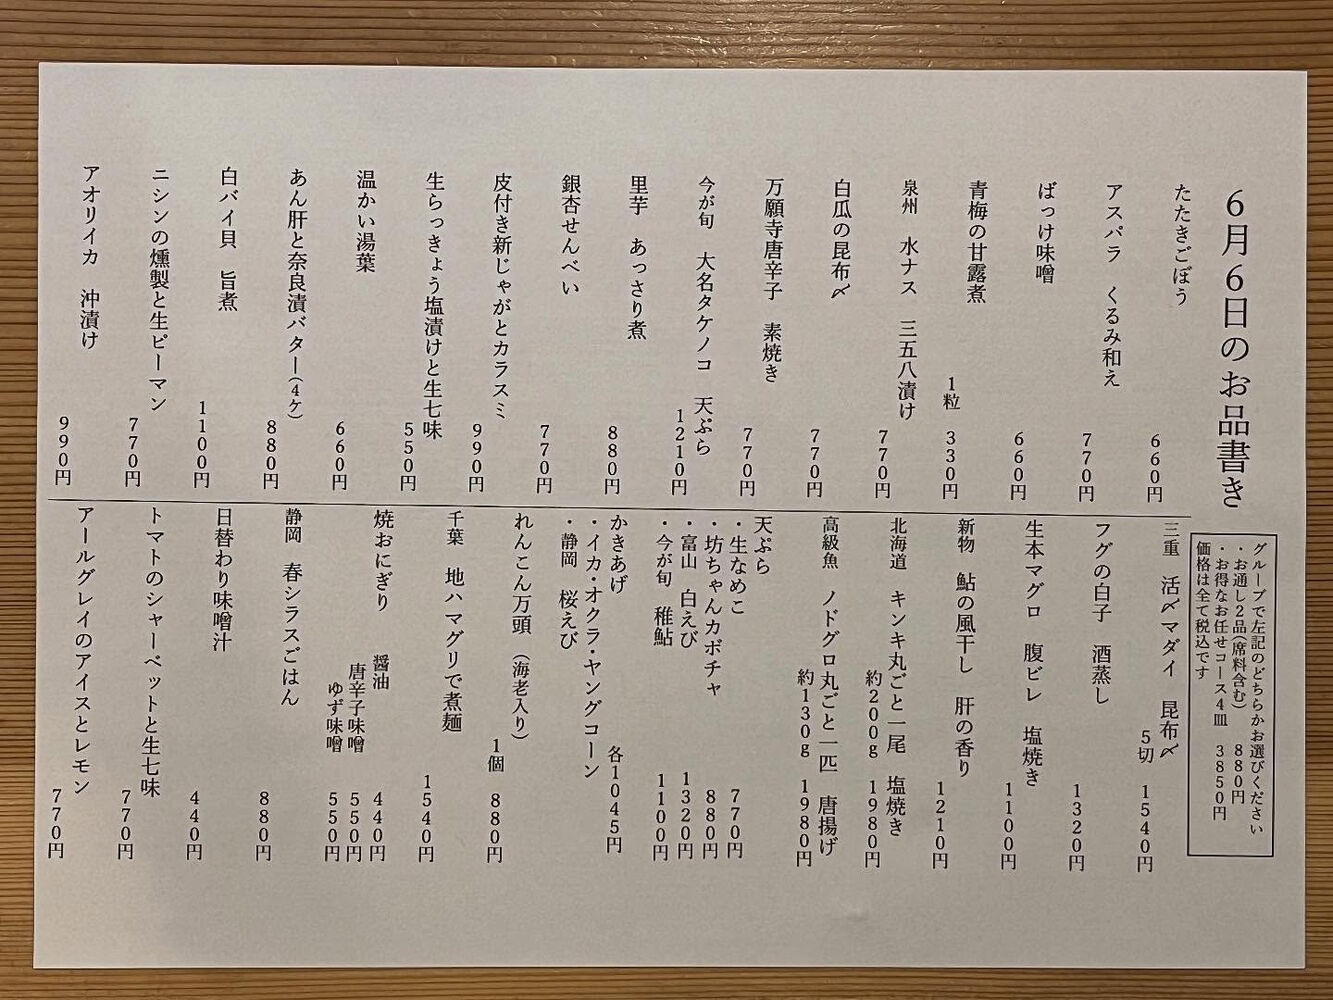 6月6日のお品書き
たたきごぼう 660円
アスパラ くるみ和え 770円
ばっけ味噌 660円
青梅の甘露煮 1粒 330円
泉州 水ナス 三五八漬け 770円
白瓜の昆布〆 770円
万願寺唐辛子 素焼き 770円
今が旬 大名タケノコ 天ぷら 1210円
里芋 あっさり煮 880円
銀杏せんべい 770円
皮付き新じゃがとカラスミ 990円
生らっきょう塩漬けと生七味 550円
温かい湯葉 660円
あん肝と奈良漬バター(4ケ) 880円
白バイ貝 旨煮 1100円
ニシンの燻製と生ピーマン 770円
アオリイカ 沖漬け 990円
グループで左記のどちらかお選びください
・お通し2品(席料含む) 880円
・お得なお任せコース4皿 3850円
価格は全て税込です
三重 活〆マダイ 昆布〆 5切 1540円
フグの白子 酒蒸し 1320円
生本マグロ 腹ビレ 塩焼き 1100円
新物 鮎の風干し 肝の香り 1210円
北海道 キンキ丸ごと一尾 塩焼き 約200g 1980円
高級魚 ノドグロ丸ごと一匹 唐揚げ 約130g 1980円
天ぷら
・生なめこ 770円
・坊ちゃんカボチャ 880円
・富山 白えび 1320円
・今が旬 稚鮎 1100円
かきあげ 各1045円
・イカ・オクラ・ヤングコーン
・静岡 桜えび
れんこん万頭 (海老入り) 1個 880円
千葉 地ハマグリで煮麺 1540円
焼おにぎり 醤油 440円
唐辛子味噌 550円
ゆず味噌 550円
静岡 春シラスごはん 880円
日替わり味噌汁 440円
トマトのシャーベットと生七味 770円
アールグレイのアイスとレモン 770円